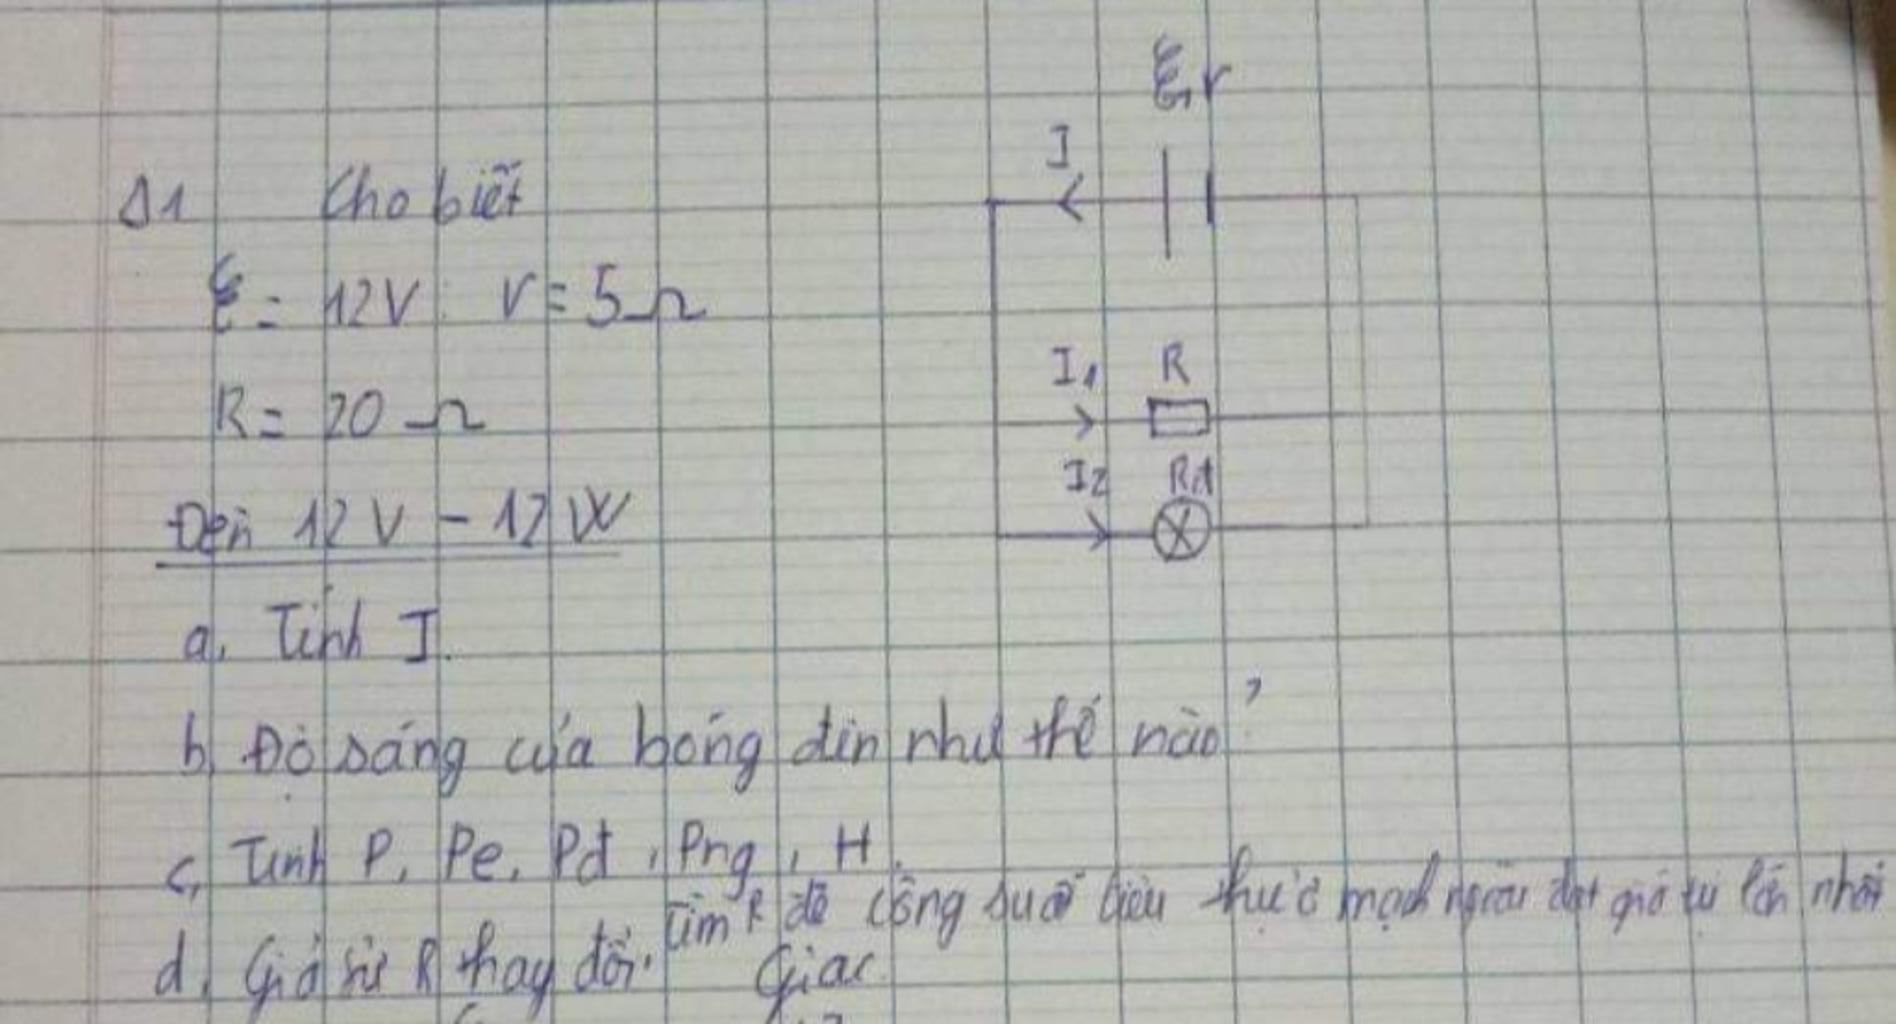 Δ1 Cho biết
ξ = 12V r = 5Ω
R = 20 Ω
Đèn 12V - 12W
ξ, r
I
I1 R
I2 Rđ
a, Tính I.
b, Độ sáng của bóng đèn như thế nào?
c, Tính P, Pe, Pđ, Png, H.
d, Giả sử R thay đổi. Tìm R để công suất tiêu thụ mạch ngoài đạt giá trị lớn nhất